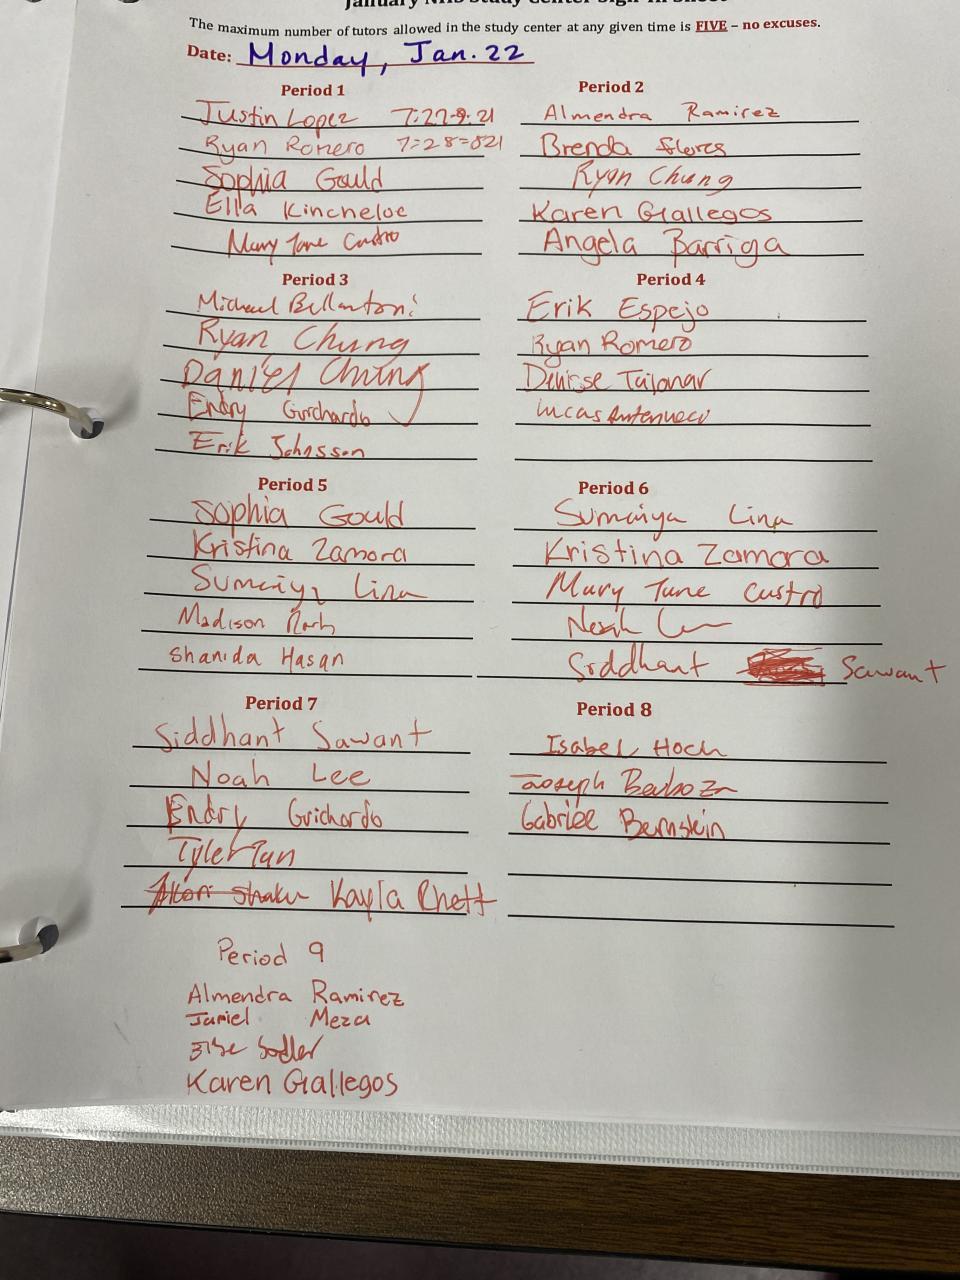 January NHS Study Center Sign-In Sheet
The maximum number of tutors allowed in the study center at any given time is FIVE – no excuses.
Date: Monday, Jan. 22
Period 1
Justin Lopez 7:27-9:21
Ryan Romero 7:28-821
Sophia Gould
Ella Kincheloe
Mary Jane Castro
Period 2
Almendra Ramirez
Brenda Flores
Ryan Chung
Karen Gallegos
Angela Barriga
Period 3
Michael Bellantoni
Ryan Chung
Daniel Chung
Endry Guichardo
Erik Johnsson
Period 4
Erik Espejo
Ryan Romero
Denisse
Lucas
Period 5
Sophia Gould
Kristina Zamora
Sumaiya Lina
Madison
Shanida Hasan
Period 6
Sumaiya Lina
Kristina Zamora
Mary Jane Castro
Noah
Siddhant Sawant
Period 7
Siddhant Sawant
Noah Lee
Endry Guichardo
Tyler Tan
Kayla Rhett
Period 8
Isabel Hoch
Joseph Barboza
Gabriel Bernstein
Period 9
Almendra Ramirez
Jamiel Meza
Karen Gallegos